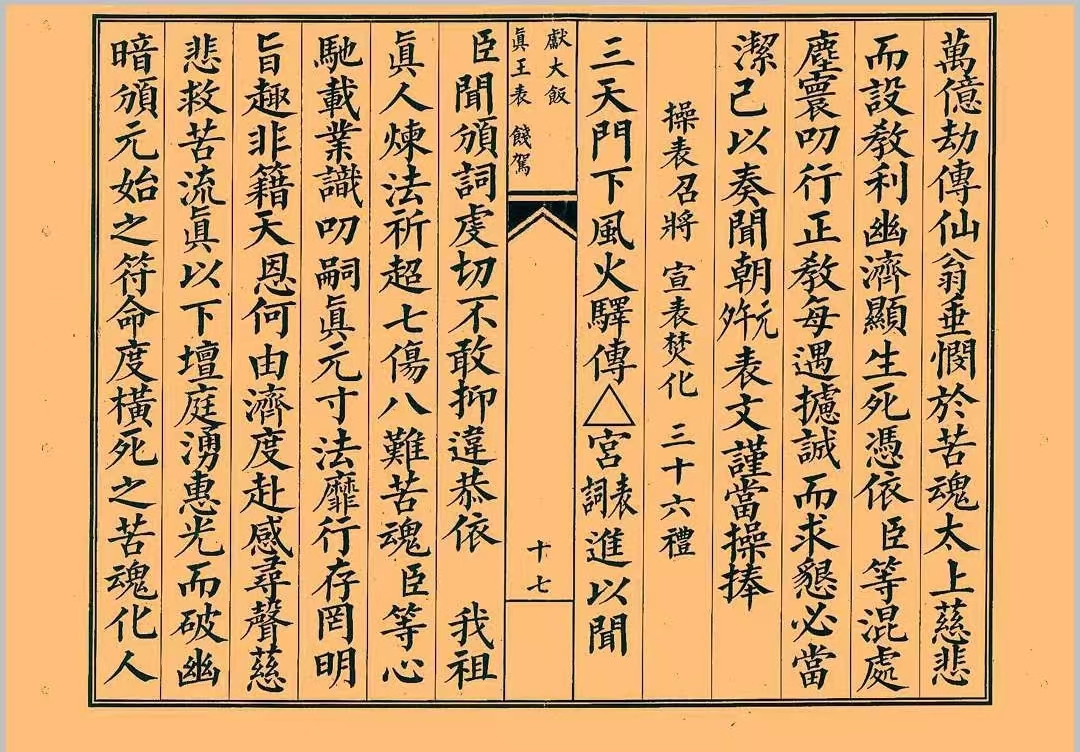 萬億劫傳仙翁垂憫於苦魂太上慈悲
而設教利幽濟顯生死憑依臣等混處
塵寰叨行正教每遇攄誠而求懇必當
潔己以奏聞朝元表文謹當操捧
操表召將 宣表焚化 三十六禮
三天門下風火驛傳△宮表詞進以聞
獻大飯
眞王表 餞駕
十七
臣聞頒詞虔切不敢抑違恭依 我祖
眞人煉法祈超七傷八難苦魂臣等心
馳載業識叨嗣眞元寸法靡行存罔明
旨趣非籍天恩何由濟度赴感尋聲慈
悲救苦流眞以下壇庭湧惠光而破幽
暗頒元始之符命度橫死之苦魂化人